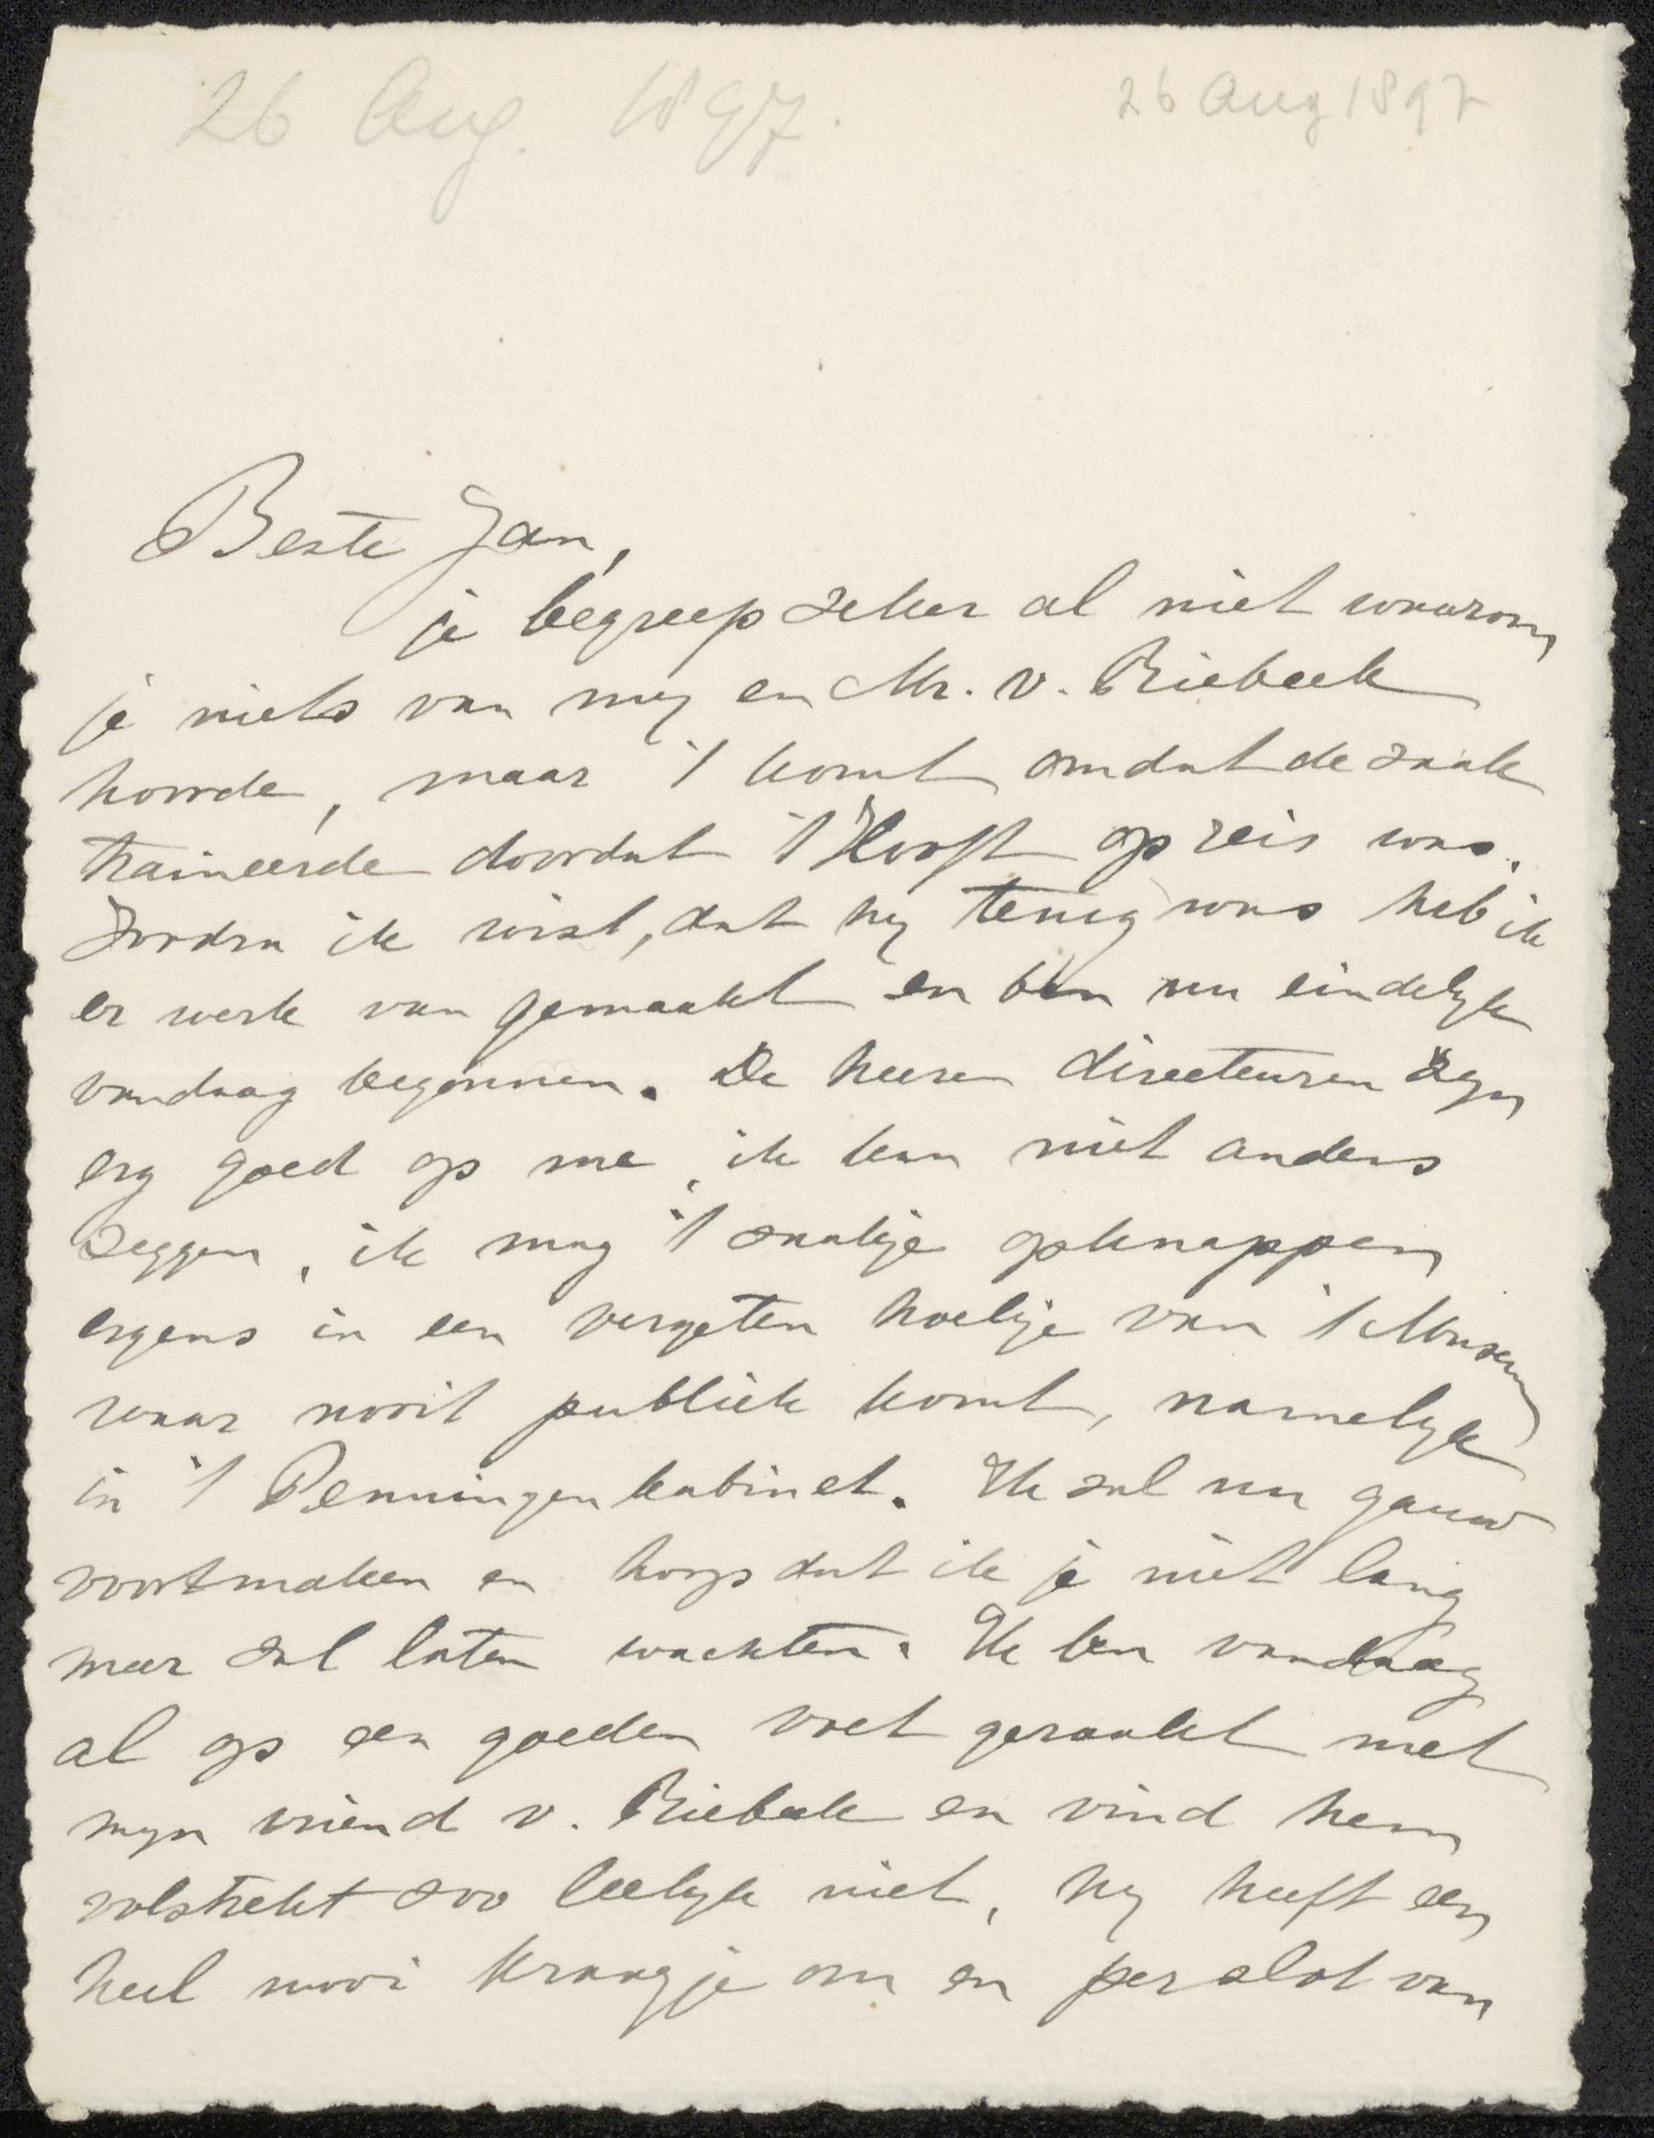 26 Aug. 1897.
26 Aug 1897
Beste Jan,
je begreep zeker al niet waarom
je niets van my en Mr. v. Riebeek
hoorde, maar 't komt omdat de zaak
traineerde doordat 't Hooft op reis was.
Zoodra ik wist, dat hy terug was heb ik
er werk van gemaakt en ben nu eindelyk
vandaag begonnen. De heeren directeuren zyn
erg goed op me, ik kan niet anders
zeggen, ik mag 't zaakje opknappen
ergens in een vergeten hoekje van 't Museum
waar nooit publiek komt, namelyk
in 't Penningenkabinet. Ik zal nu gauw
voortmaken en hoop dat ik je niet lang
meer zal laten wachten. Ik ben vandaag
al op een goeden voet geraakt met
myn vriend v. Riebeek en vind hem
volstrekt zoo leelyk niet, hy heeft een
heel mooi kraagje om en per slot van